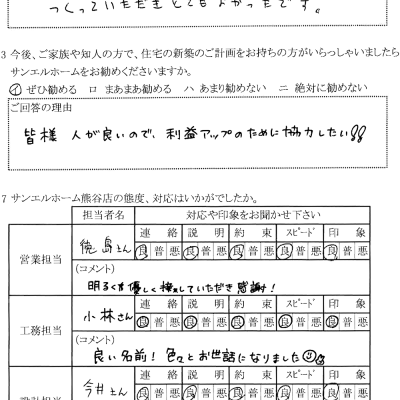 つくっていただきとてもよかったです。
3 今後、ご家族や知人の方で、住宅の新築のご計画をお持ちの方がいらっしゃいましたら
サンエルホームをお勧めくださいますか。
イ ぜひ勧める ロ まあまあ勧める ハ あまり勧めない ニ 絶対に勧めない
ご回答の理由
皆様 人が良いので、利益アップのために協力したい!!
7 サンエルホーム熊谷店の態度、対応はいかがでしたか。
担当者名 対応や印象をお聞かせ下さい
営業担当 徳島さん 連絡 説明 約束 スピード 印象
良 普 悪 良 普 悪 良 普 悪 良 普 悪 良 普 悪
(コメント)
明るく優しく接していただき感謝!
工務担当 小林さん 連絡 説明 約束 スピード 印象
良 普 悪 良 普 悪 良 普 悪 良 普 悪 良 普 悪
(コメント)
良い名前! 色々とお世話になりました
設計担当 今井さん 連絡 説明 約束 スピード 印象
良 普 悪 良 普 悪 良 普 悪 良 普 悪 良 普 悪